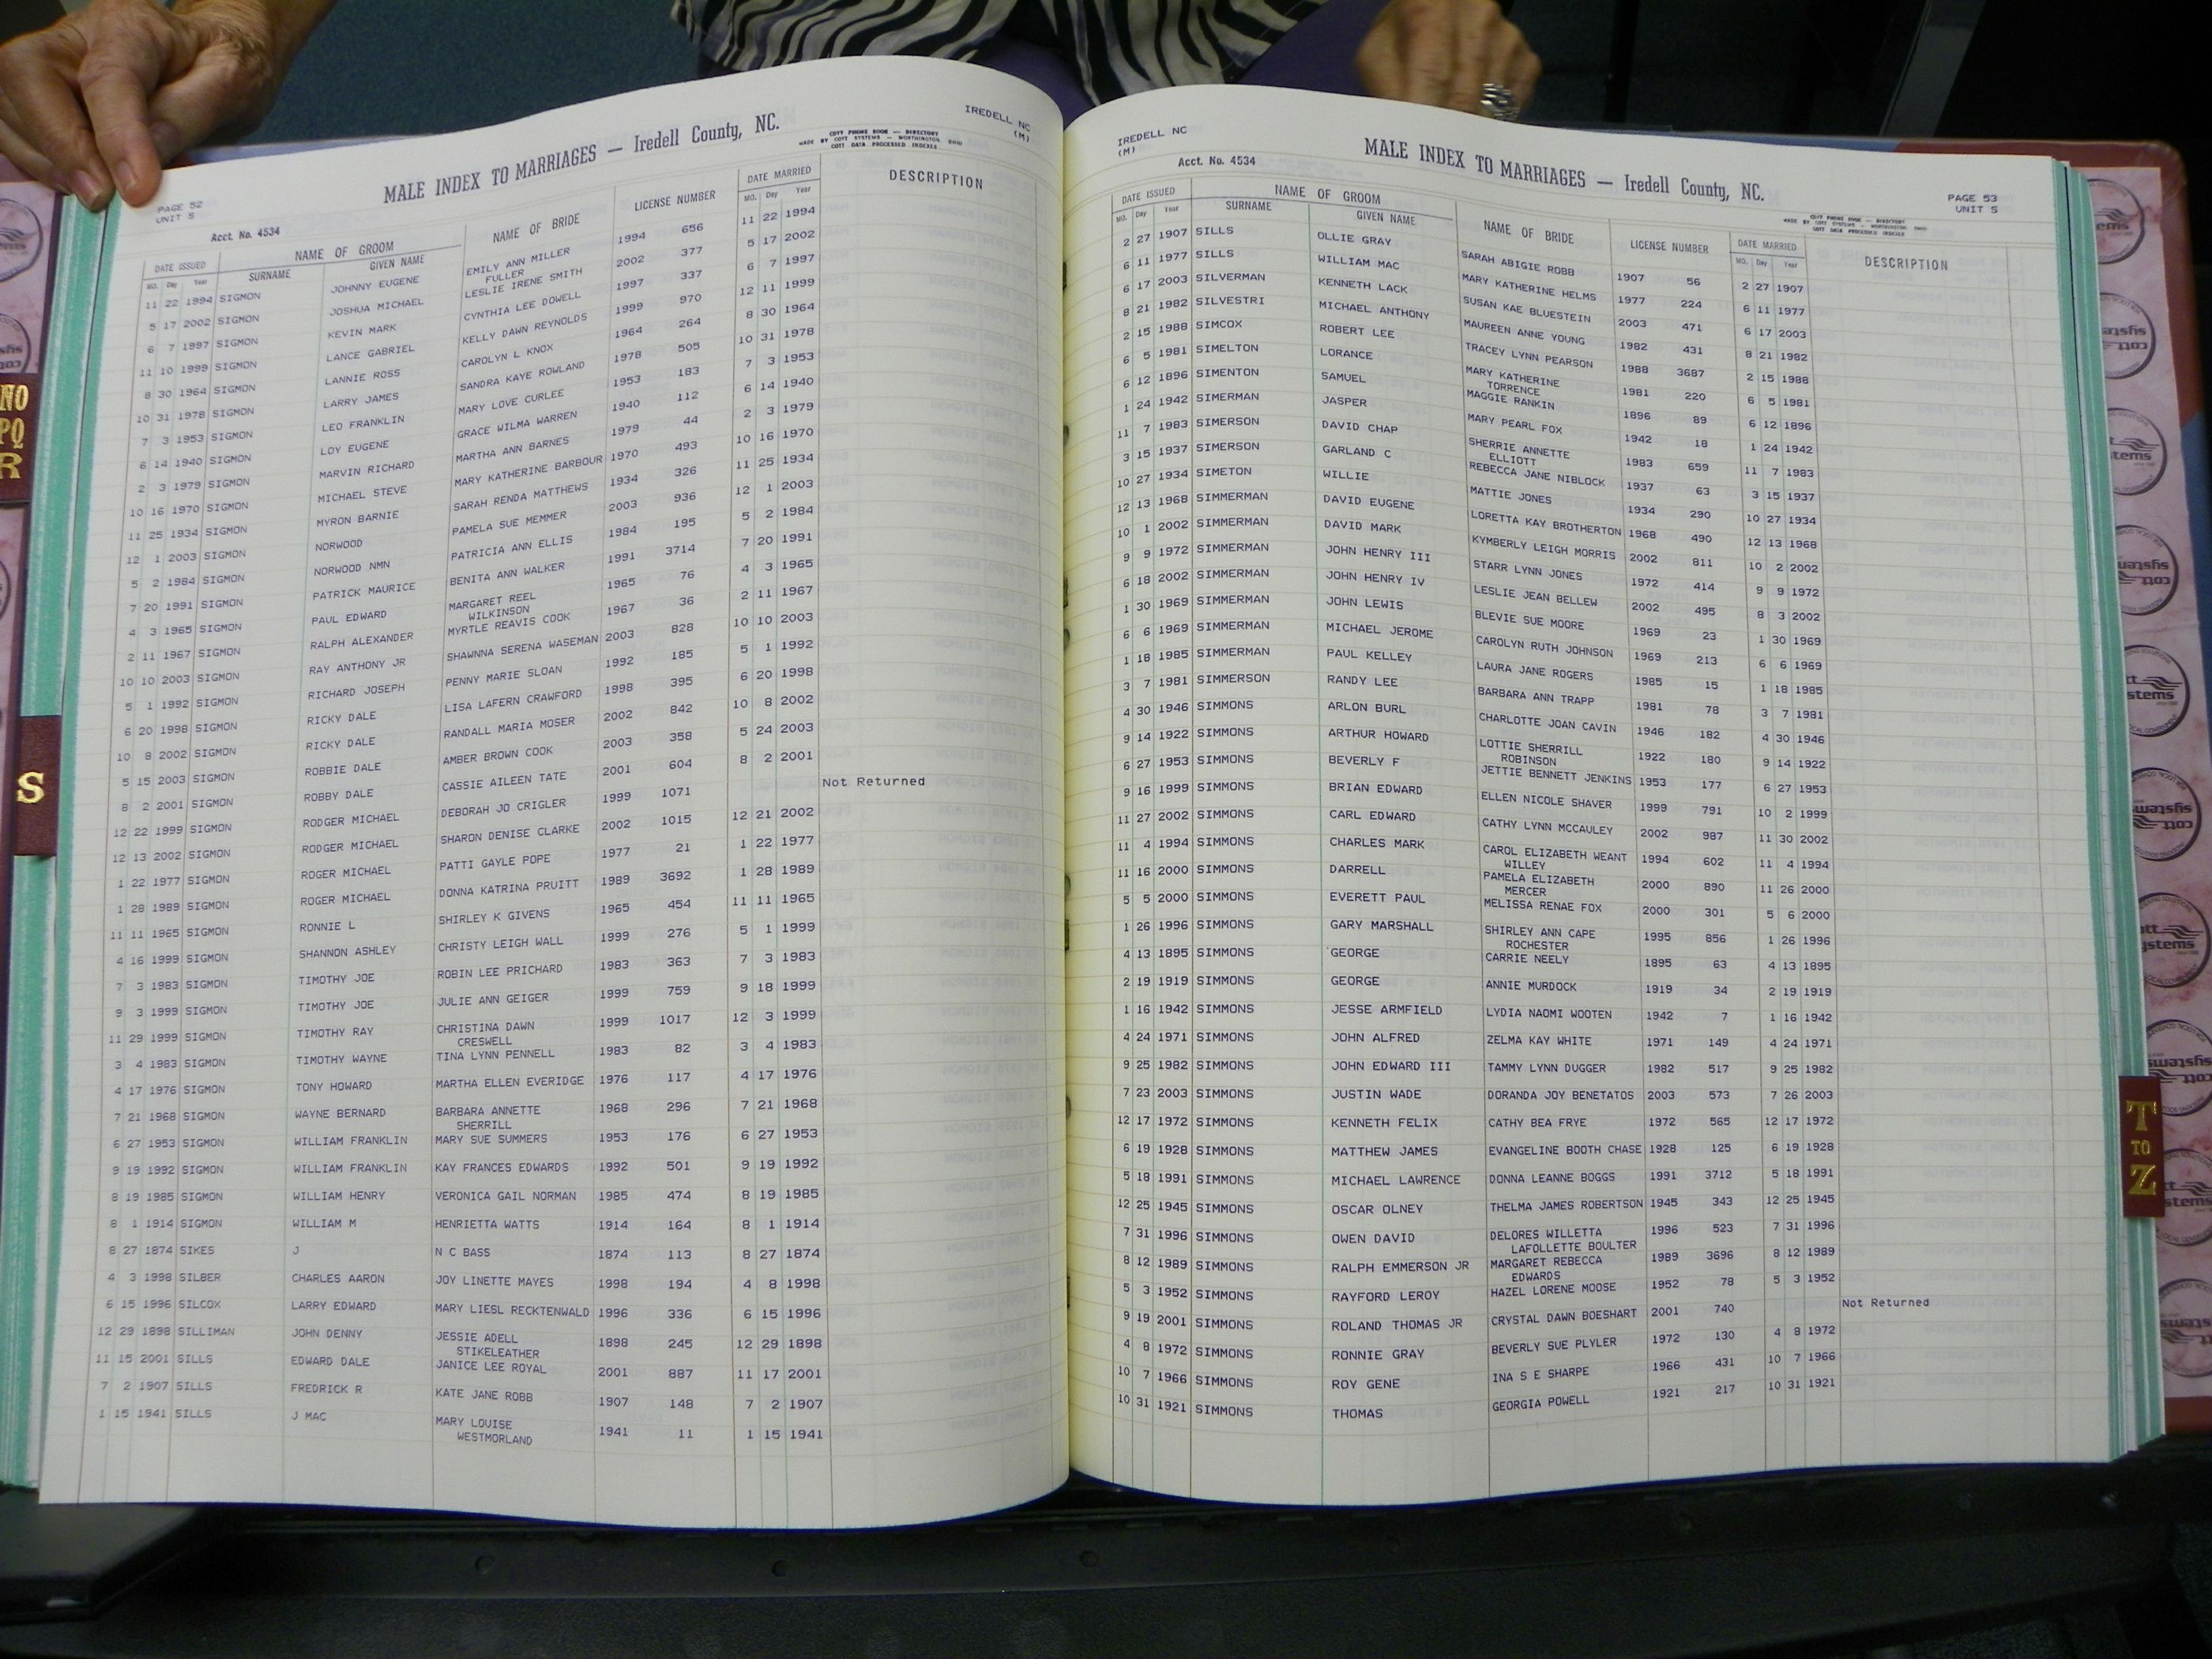 IREDELL NC
(M)
MALE INDEX TO MARRIAGES — Iredell County, NC.
COTT PHONE BOOK — DIRECTORY
MADE BY COTT SYSTEMS — WORTHINGTON, OHIO
COTT DATA PROCESSED INDEXES
PAGE 52
UNIT S
Acct. No. 4534
DATE ISSUED NAME OF GROOM NAME OF BRIDE LICENSE NUMBER DATE MARRIED DESCRIPTION
MO. Day Year SURNAME GIVEN NAME MO. Day Year
11 22 1994 SIGMON JOHNNY EUGENE EMILY ANN MILLER 1994 656 11 22 1994
FULLER
5 17 2002 SIGMON JOSHUA MICHAEL LESLIE IRENE SMITH 2002 377 5 17 2002
6 7 1997 SIGMON KEVIN MARK CYNTHIA LEE DOWELL 1997 337 6 7 1997
11 10 1999 SIGMON LANCE GABRIEL KELLY DAWN REYNOLDS 1999 970 12 11 1999
8 30 1964 SIGMON LANNIE ROSS CAROLYN L KNOX 1964 264 8 30 1964
10 31 1978 SIGMON LARRY JAMES SANDRA KAYE ROWLAND 1978 505 10 31 1978
7 3 1953 SIGMON LEO FRANKLIN MARY LOVE CURLEE 1953 183 7 3 1953
6 14 1940 SIGMON LOY EUGENE GRACE WILMA WARREN 1940 112 6 14 1940
2 3 1979 SIGMON MARVIN RICHARD MARTHA ANN BARNES 1979 44 2 3 1979
10 16 1970 SIGMON MICHAEL STEVE MARY KATHERINE BARBOUR 1970 493 10 16 1970
11 25 1934 SIGMON MYRON BARNIE SARAH RENDA MATTHEWS 1934 326 11 25 1934
12 1 2003 SIGMON NORWOOD PAMELA SUE MEMMER 2003 936 12 1 2003
5 2 1984 SIGMON NORWOOD NMN PATRICIA ANN ELLIS 1984 195 5 2 1984
7 20 1991 SIGMON PATRICK MAURICE BENITA ANN WALKER 1991 3714 7 20 1991
4 3 1965 SIGMON PAUL EDWARD MARGARET REEL 1965 76 4 3 1965
WILKINSON
2 11 1967 SIGMON RALPH ALEXANDER MYRTLE REAVIS COOK 1967 36 2 11 1967
10 10 2003 SIGMON RAY ANTHONY JR SHAWNNA SERENA WASEMAN 2003 828 10 10 2003
5 1 1992 SIGMON RICHARD JOSEPH PENNY MARIE SLOAN 1992 185 5 1 1992
6 20 1998 SIGMON RICKY DALE LISA LAFERN CRAWFORD 1998 395 6 20 1998
10 8 2002 SIGMON RICKY DALE RANDALL MARIA MOSER 2002 842 10 8 2002
5 15 2003 SIGMON ROBBIE DALE AMBER BROWN COOK 2003 358 5 24 2003
8 2 2001 SIGMON ROBBY DALE CASSIE AILEEN TATE 2001 604 8 2 2001
12 22 1999 SIGMON RODGER MICHAEL DEBORAH JO CRIGLER 1999 1071 Not Returned
12 13 2002 SIGMON RODGER MICHAEL SHARON DENISE CLARKE 2002 1015 12 21 2002
1 22 1977 SIGMON ROGER MICHAEL PATTI GAYLE POPE 1977 21 1 22 1977
1 28 1989 SIGMON ROGER MICHAEL DONNA KATRINA PRUITT 1989 3692 1 28 1989
11 11 1965 SIGMON RONNIE L SHIRLEY K GIVENS 1965 454 11 11 1965
4 16 1999 SIGMON SHANNON ASHLEY CHRISTY LEIGH WALL 1999 276 5 1 1999
7 3 1983 SIGMON TIMOTHY JOE ROBIN LEE PRICHARD 1983 363 7 3 1983
9 3 1999 SIGMON TIMOTHY JOE JULIE ANN GEIGER 1999 759 9 18 1999
11 29 1999 SIGMON TIMOTHY RAY CHRISTINA DAWN 1999 1017 12 3 1999
CRESWELL
3 4 1983 SIGMON TIMOTHY WAYNE TINA LYNN PENNELL 1983 82 3 4 1983
4 17 1976 SIGMON TONY HOWARD MARTHA ELLEN EVERIDGE 1976 117 4 17 1976
7 21 1968 SIGMON WAYNE BERNARD BARBARA ANNETTE 1968 296 7 21 1968
SHERRILL
6 27 1953 SIGMON WILLIAM FRANKLIN MARY SUE SUMMERS 1953 176 6 27 1953
9 19 1992 SIGMON WILLIAM FRANKLIN KAY FRANCES EDWARDS 1992 501 9 19 1992
8 19 1985 SIGMON WILLIAM HENRY VERONICA GAIL NORMAN 1985 474 8 19 1985
8 1 1914 SIGMON WILLIAM M HENRIETTA WATTS 1914 164 8 1 1914
8 27 1874 SIKES J N C BASS 1874 113 8 27 1874
4 3 1998 SILBER CHARLES AARON JOY LINETTE MAYES 1998 194 4 8 1998
6 15 1996 SILCOX LARRY EDWARD MARY LIESL RECKTENWALD 1996 336 6 15 1996
12 29 1898 SILLIMAN JOHN DENNY JESSIE ADELL 1898 245 12 29 1898
STIKELEATHER
11 15 2001 SILLS EDWARD DALE JANICE LEE ROYAL 2001 887 11 17 2001
7 2 1907 SILLS FREDRICK R KATE JANE ROBB 1907 148 7 2 1907
1 15 1941 SILLS J MAC MARY LOUISE 1941 11 1 15 1941
WESTMORLAND
IREDELL NC
(M)
MALE INDEX TO MARRIAGES — Iredell County, NC.
Acct. No. 4534
PAGE 53
UNIT S
COTT PHONE BOOK — DIRECTORY
MADE BY COTT SYSTEMS — WORTHINGTON, OHIO
COTT DATA PROCESSED INDEXES
DATE ISSUED NAME OF GROOM NAME OF BRIDE LICENSE NUMBER DATE MARRIED DESCRIPTION
MO. Day Year SURNAME GIVEN NAME MO. Day Year
2 27 1907 SILLS OLLIE GRAY SARAH ABIGIE ROBB 1907 56 2 27 1907
6 11 1977 SILLS WILLIAM MAC MARY KATHERINE HELMS 1977 224 6 11 1977
6 17 2003 SILVERMAN KENNETH LACK SUSAN KAE BLUESTEIN 2003 471 6 17 2003
8 21 1982 SILVESTRI MICHAEL ANTHONY MAUREEN ANNE YOUNG 1982 431 8 21 1982
2 15 1988 SIMCOX ROBERT LEE TRACEY LYNN PEARSON 1988 3687 2 15 1988
6 5 1981 SIMELTON LORANCE MARY KATHERINE 1981 220 6 5 1981
TORRENCE
6 12 1896 SIMENTON SAMUEL MAGGIE RANKIN 1896 89 6 12 1896
1 24 1942 SIMERMAN JASPER MARY PEARL FOX 1942 18 1 24 1942
11 7 1983 SIMERSON DAVID CHAP SHERRIE ANNETTE 1983 659 11 7 1983
ELLIOTT
3 15 1937 SIMERSON GARLAND C REBECCA JANE NIBLOCK 1937 63 3 15 1937
10 27 1934 SIMETON WILLIE MATTIE JONES 1934 290 10 27 1934
12 13 1968 SIMMERMAN DAVID EUGENE LORETTA KAY BROTHERTON 1968 490 12 13 1968
10 1 2002 SIMMERMAN DAVID MARK KYMBERLY LEIGH MORRIS 2002 811 10 2 2002
9 9 1972 SIMMERMAN JOHN HENRY III STARR LYNN JONES 1972 414 9 9 1972
6 18 2002 SIMMERMAN JOHN HENRY IV LESLIE JEAN BELLEW 2002 495 8 3 2002
1 30 1969 SIMMERMAN JOHN LEWIS BLEVIE SUE MOORE 1969 23 1 30 1969
6 6 1969 SIMMERMAN MICHAEL JEROME CAROLYN RUTH JOHNSON 1969 213 6 6 1969
1 18 1985 SIMMERMAN PAUL KELLEY LAURA JANE ROGERS 1985 15 1 18 1985
3 7 1981 SIMMERSON RANDY LEE BARBARA ANN TRAPP 1981 78 3 7 1981
4 30 1946 SIMMONS ARLON BURL CHARLOTTE JOAN CAVIN 1946 182 4 30 1946
9 14 1922 SIMMONS ARTHUR HOWARD LOTTIE SHERRILL 1922 180 9 14 1922
ROBINSON
6 27 1953 SIMMONS BEVERLY F JETTIE BENNETT JENKINS 1953 177 6 27 1953
9 16 1999 SIMMONS BRIAN EDWARD ELLEN NICOLE SHAVER 1999 791 10 2 1999
11 27 2002 SIMMONS CARL EDWARD CATHY LYNN MCCAULEY 2002 987 11 30 2002
11 4 1994 SIMMONS CHARLES MARK CAROL ELIZABETH WEANT 1994 602 11 4 1994
WILLEY
11 16 2000 SIMMONS DARRELL PAMELA ELIZABETH 2000 890 11 26 2000
MERCER
5 5 2000 SIMMONS EVERETT PAUL MELISSA RENAE FOX 2000 301 5 6 2000
1 26 1996 SIMMONS GARY MARSHALL SHIRLEY ANN CAPE 1995 856 1 26 1996
ROCHESTER
4 13 1895 SIMMONS GEORGE CARRIE NEELY 1895 63 4 13 1895
2 19 1919 SIMMONS GEORGE ANNIE MURDOCK 1919 34 2 19 1919
1 16 1942 SIMMONS JESSE ARMFIELD LYDIA NAOMI WOOTEN 1942 7 1 16 1942
4 24 1971 SIMMONS JOHN ALFRED ZELMA KAY WHITE 1971 149 4 24 1971
9 25 1982 SIMMONS JOHN EDWARD III TAMMY LYNN DUGGER 1982 517 9 25 1982
7 23 2003 SIMMONS JUSTIN WADE DORANDA JOY BENETATOS 2003 573 7 26 2003
12 17 1972 SIMMONS KENNETH FELIX CATHY BEA FRYE 1972 565 12 17 1972
6 19 1928 SIMMONS MATTHEW JAMES EVANGELINE BOOTH CHASE 1928 125 6 19 1928
5 18 1991 SIMMONS MICHAEL LAWRENCE DONNA LEANNE BOGGS 1991 3712 5 18 1991
12 25 1945 SIMMONS OSCAR OLNEY THELMA JAMES ROBERTSON 1945 343 12 25 1945
7 31 1996 SIMMONS OWEN DAVID DELORES WILLETTA 1996 523 7 31 1996
LAFOLLETTE BOULTER
8 12 1989 SIMMONS RALPH EMMERSON JR MARGARET REBECCA 1989 3696 8 12 1989
EDWARDS
5 3 1952 SIMMONS RAYFORD LEROY HAZEL LORENE MOOSE 1952 78 5 3 1952
9 19 2001 SIMMONS ROLAND THOMAS JR CRYSTAL DAWN BOESHART 2001 740 Not Returned
4 8 1972 SIMMONS RONNIE GRAY BEVERLY SUE PLYLER 1972 130 4 8 1972
10 7 1966 SIMMONS ROY GENE INA S E SHARPE 1966 431 10 7 1966
10 31 1921 SIMMONS THOMAS GEORGIA POWELL 1921 217 10 31 1921
NO
PQ
R
S
T
TO
Z